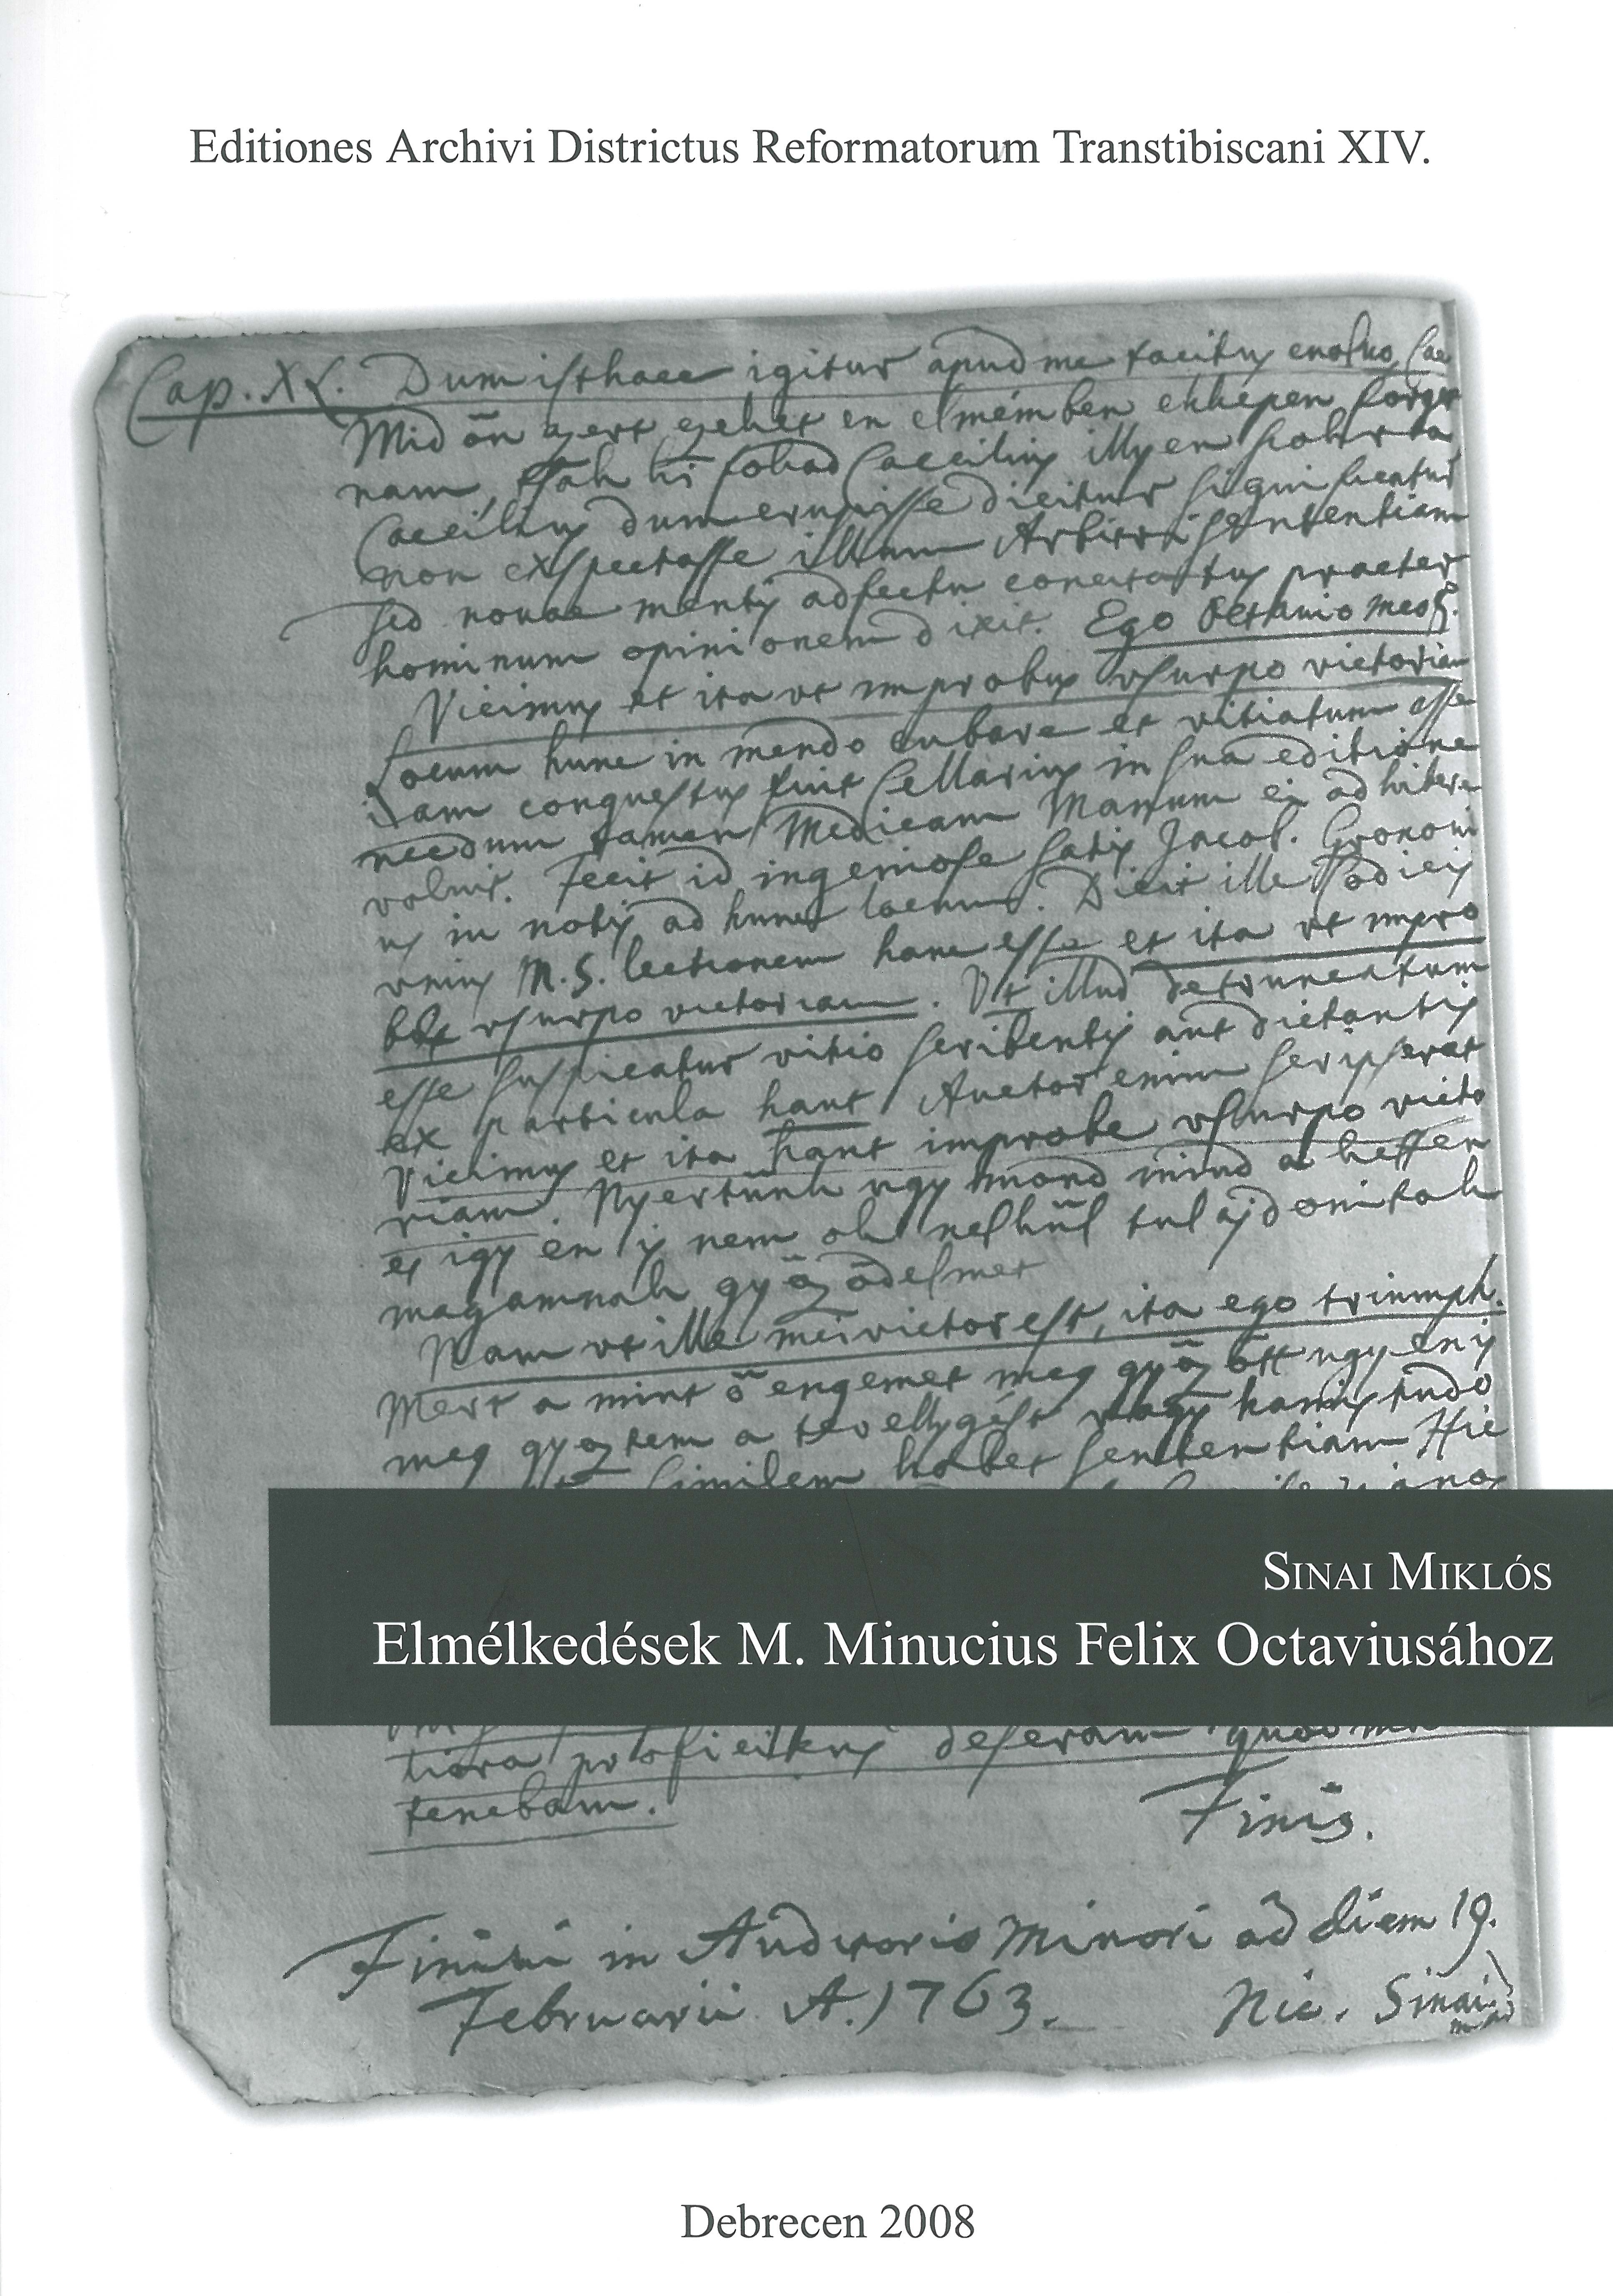 Editiones Archivi Districtus Reformatorum Transtibiscani XIV.
Cap. XL. Dum isthaec igitur apud me tacitus evoluo, Cae
Mid őn azert ezeket en elmémben ekképen forgat
nam, tsak ki fokad Caecilius illyen szókra
Caecilius dum erupisse dicitur significatur
non exspectasse illum Arbitri sententiam
sed novae mentis adfectu concitatus praeter
hominum opinionem dixit. Ego Octavio meo
Vicimus et ita ut improbus usurpo victoriam
Locum hunc in mendo cubare et vitiatum esse
iam conquestus fuit Cellarius in sua editione
necdum tamen Medicam Manum ei adhibere
voluit. Fecit id ingeniose satis Jacob. Gronovi
us in notis ad hunc locum. Dicit ille Codicis
unius M.S. lectionem hanc esse et ita ut impro
be usurpo victoriam. Ut illud detruncatum
esse suspicatur vitio scribentis aut dictantis
ex particula haut Auctor enim scripserat
Vicimus et ita haut improbe usurpo victo
riam. Nyertünk ugy mond mind a ketten
es igy en is nem ok nelkül tulajdonitok
magamnak győzödelmet
Nam ut ille mei victor est, ita ego triumph.
Mert a mint ő engemet meg győzött ugy en is
meg győztem a tevellygést vagy hamis tudo
similem habet sententiam Hie
SINAI MIKLÓS
Elmélkedések M. Minucius Felix Octaviusához
tiora proficiscens deseram quod
tenebam.
Finis.
Finivi in Auditorio Minori ad diem 19.
Februarii A. 1763. Nic. Sinai
Debrecen 2008